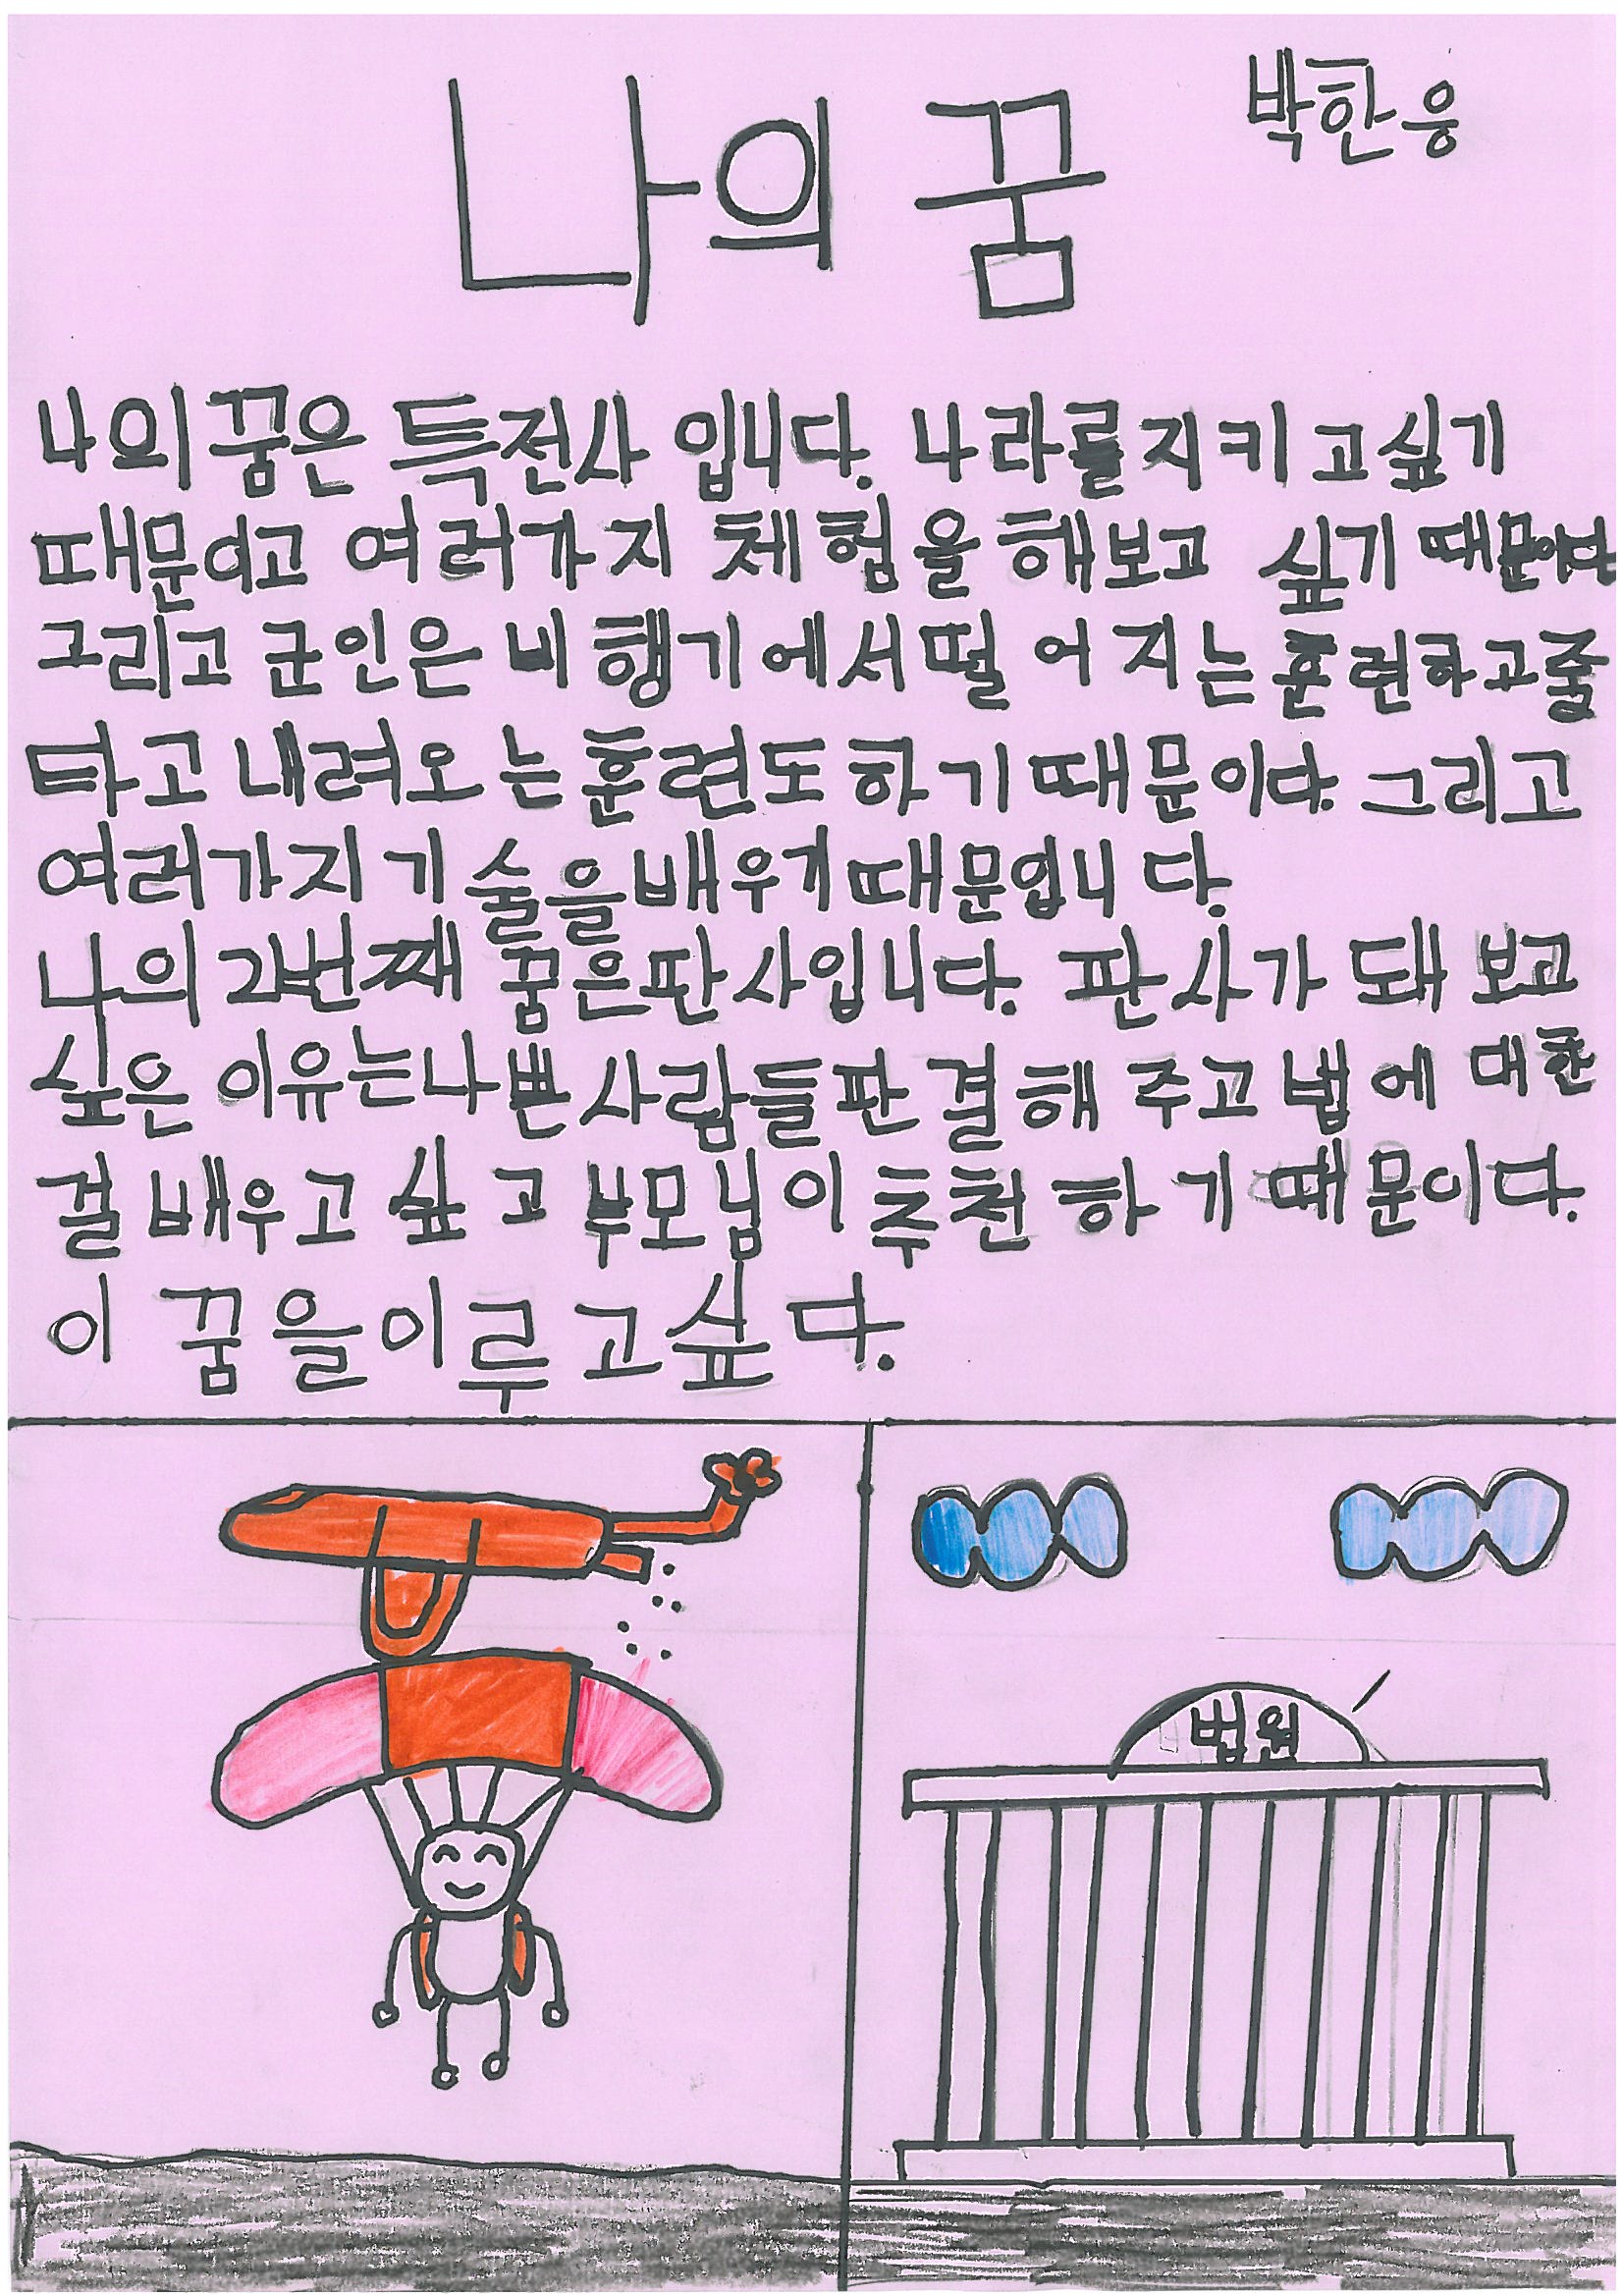 나의 꿈
박한웅
나의 꿈은 특전사 입니다. 나라를 지키고 싶기
때문이고 여러가지 체험을 해보고 싶기 때문이다
그리고 군인은 비행기에서 떨어지는 훈련하고 줄
타고 내려오는 훈련도 하기 때문이다. 그리고
여러가지 기술을 배우기 때문입니다.
나의 2번째 꿈은 판사입니다. 판사가 돼 보고
싶은 이유는 나쁜 사람들 판결해 주고 법에 대한
걸 배우고 싶고 부모님이 추천하기 때문이다.
이 꿈을 이루고 싶다.
법원